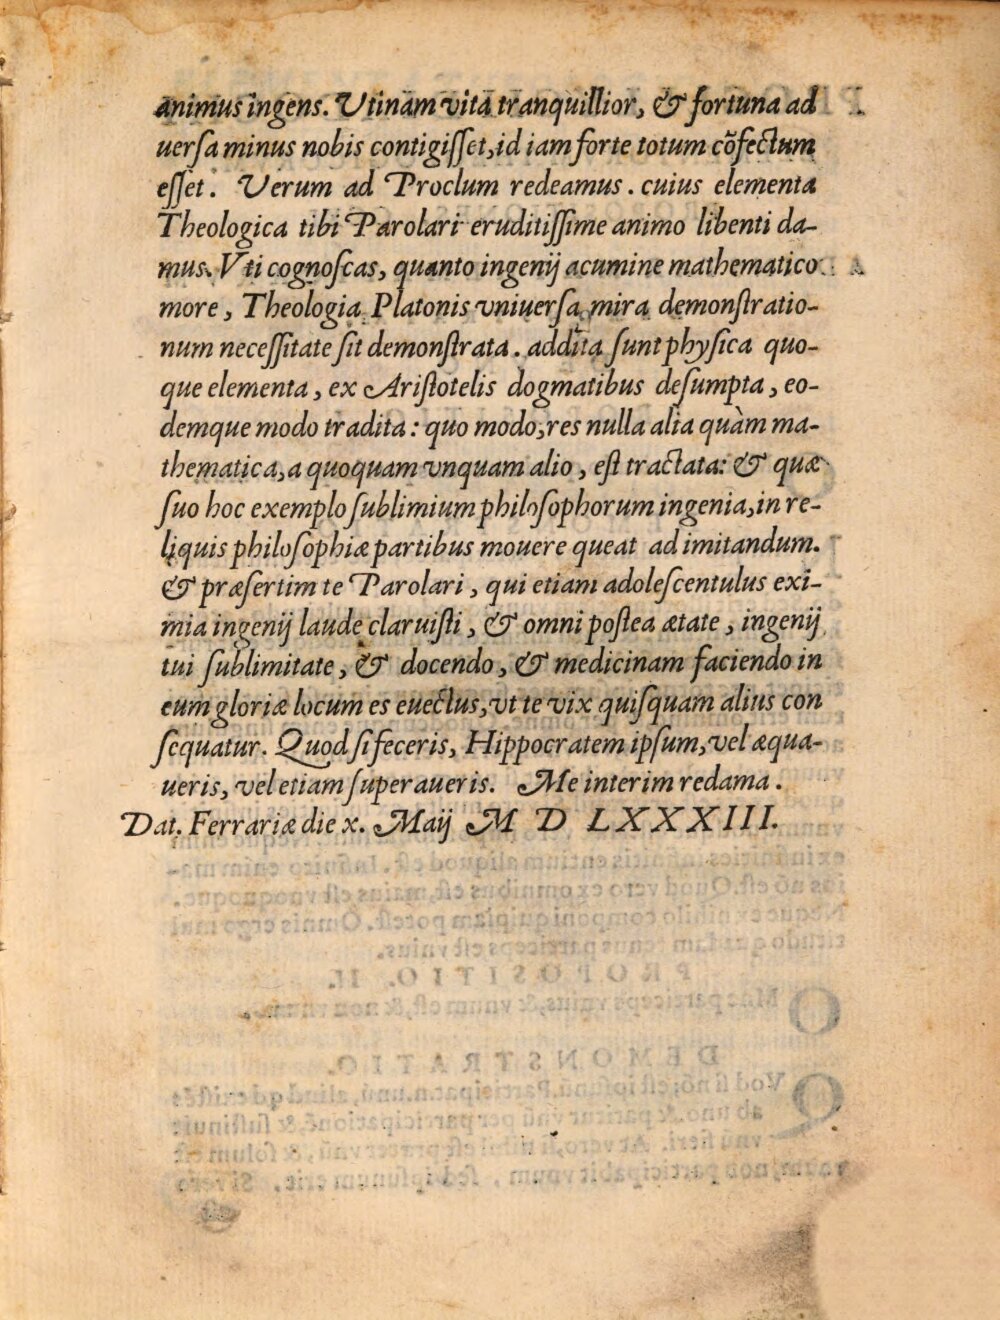 animus ingens. Vtinam vita tranquillior, & fortuna ad
uersa minus nobis contigisset, id iam forte totum cõfectum
esset. Verum ad Proclum redeamus. cuius elementa
Theologica tibi Parolari eruditissime animo libenti da-
mus. Vti cognoscas, quanto ingenij acumine mathematico
more, Theologia Platonis vniuersa mira demonstratio-
num necessitate sit demonstrata. addita sunt physica quo-
que elementa, ex Aristotelis dogmatibus desumpta, eo-
demque modo tradita: quo modo, res nulla alia quàm ma-
thematica, a quoquam vnquam alio, est tractata: & quæ
suo hoc exemplo sublimium philosophorum ingenia, in re-
liquis philosophiæ partibus mouere queat ad imitandum.
& præsertim te Parolari, qui etiam adolescentulus exi-
mia ingenij laude claruisti, & omni postea ætate, ingenij
tui sublimitate, & docendo, & medicinam faciendo in
eum gloriæ locum es euectus, vt te vix quisquam alius con
sequatur. Quod si feceris, Hippocratem ipsum, vel æqua-
ueris, vel etiam superaueris. Me interim redama.
Dat. Ferrariæ die x. Maij M D LXXXIII.